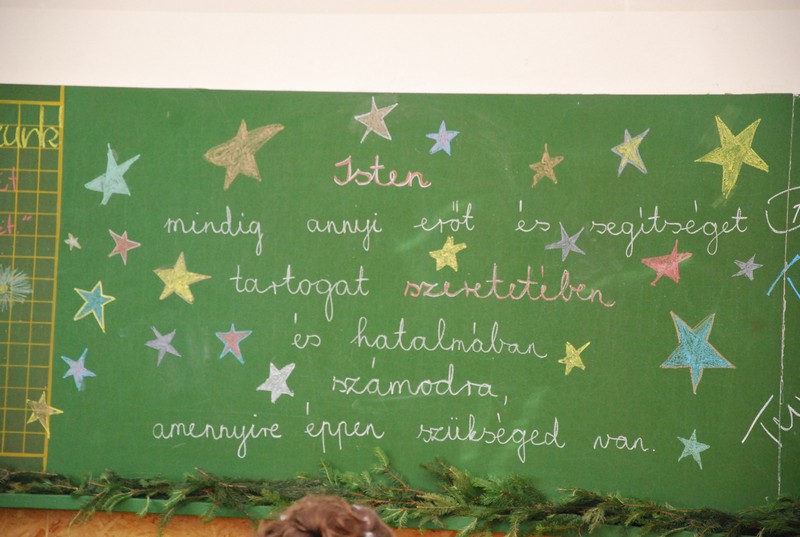 Isten
mindig annyi erőt és segítséget
tartogat szeretetében
és hatalmában
számodra,
amennyire éppen szükséged van.